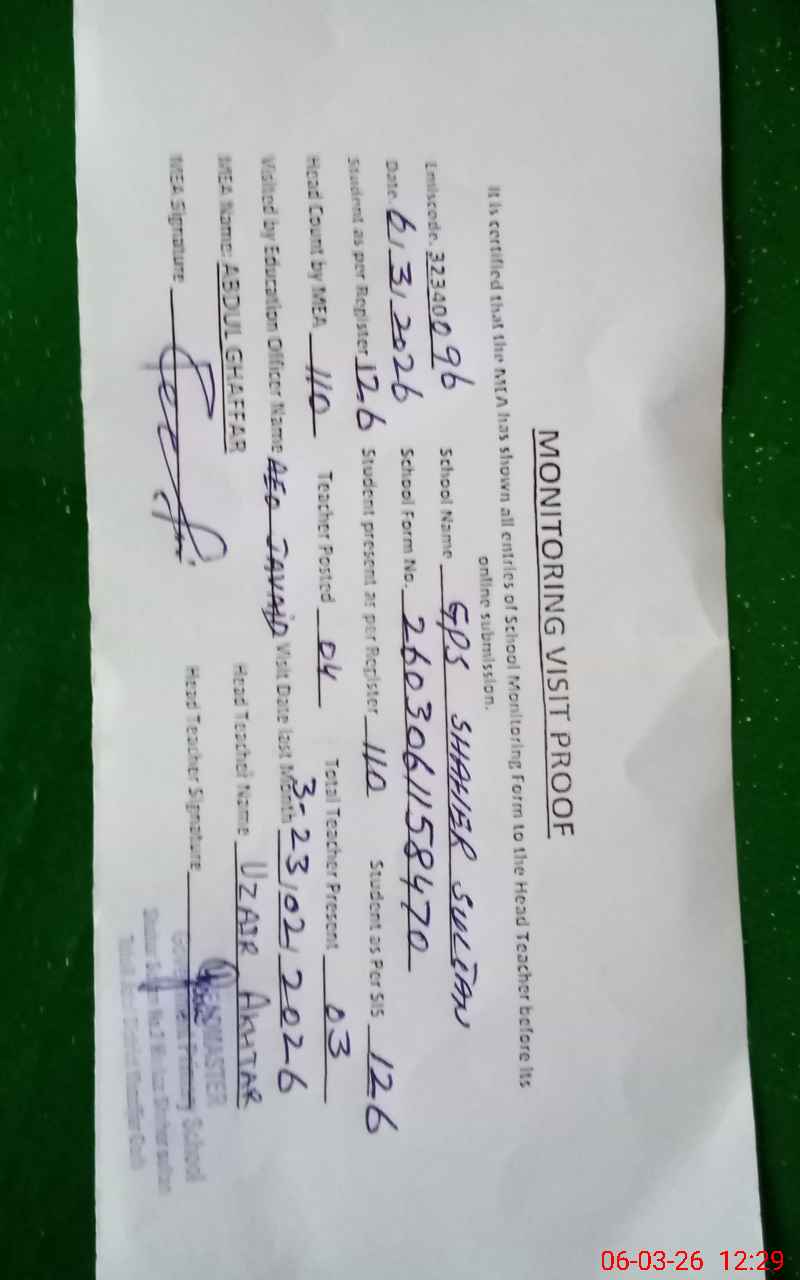 MONITORING VISIT PROOF
It is certified that the MEA has shown all entries of School Monitoring Form to the Head Teacher before its
online submission.
Emiscode. 32340096 School Name GPS SHAHER SULTAN
Date. 6/3/2026 School Form No. 2603061158470
Student as per Register 126 Student present as per Register 110 Student as Per SIS 126
Head Count by MEA 110 Teacher Posted 04 Total Teacher Present 03
Visited by Education Officer Name AEO JAVAID Visit Date last Month 3-23/02/2026
MEA Name: ABDUL GHAFFAR Head Teacher Name UZAIR AKHTAR
MEA Signature Head Teacher Signature
HEADMASTER
Government Primary School
06-03-26 12:29